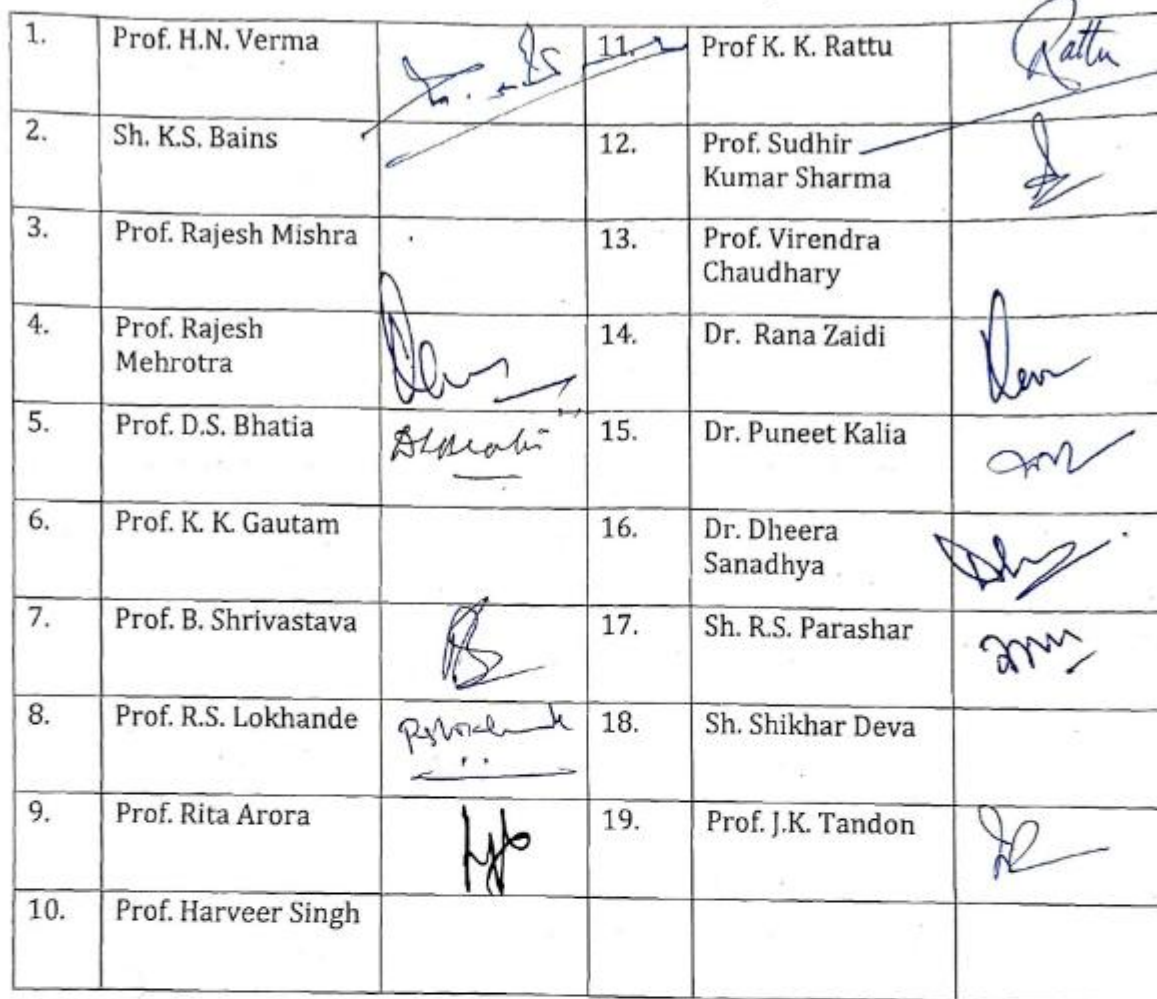 1. Prof. H.N. Verma 11. Prof K. K. Rattu Rattu
2. Sh. K.S. Bains 12. Prof. Sudhir
Kumar Sharma
3. Prof. Rajesh Mishra 13. Prof. Virendra
Chaudhary
4. Prof. Rajesh 14. Dr. Rana Zaidi
Mehrotra
5. Prof. D.S. Bhatia 15. Dr. Puneet Kalia
6. Prof. K. K. Gautam 16. Dr. Dheera
Sanadhya
7. Prof. B. Shrivastava 17. Sh. R.S. Parashar
8. Prof. R.S. Lokhande 18. Sh. Shikhar Deva
9. Prof. Rita Arora 19. Prof. J.K. Tandon
10. Prof. Harveer Singh